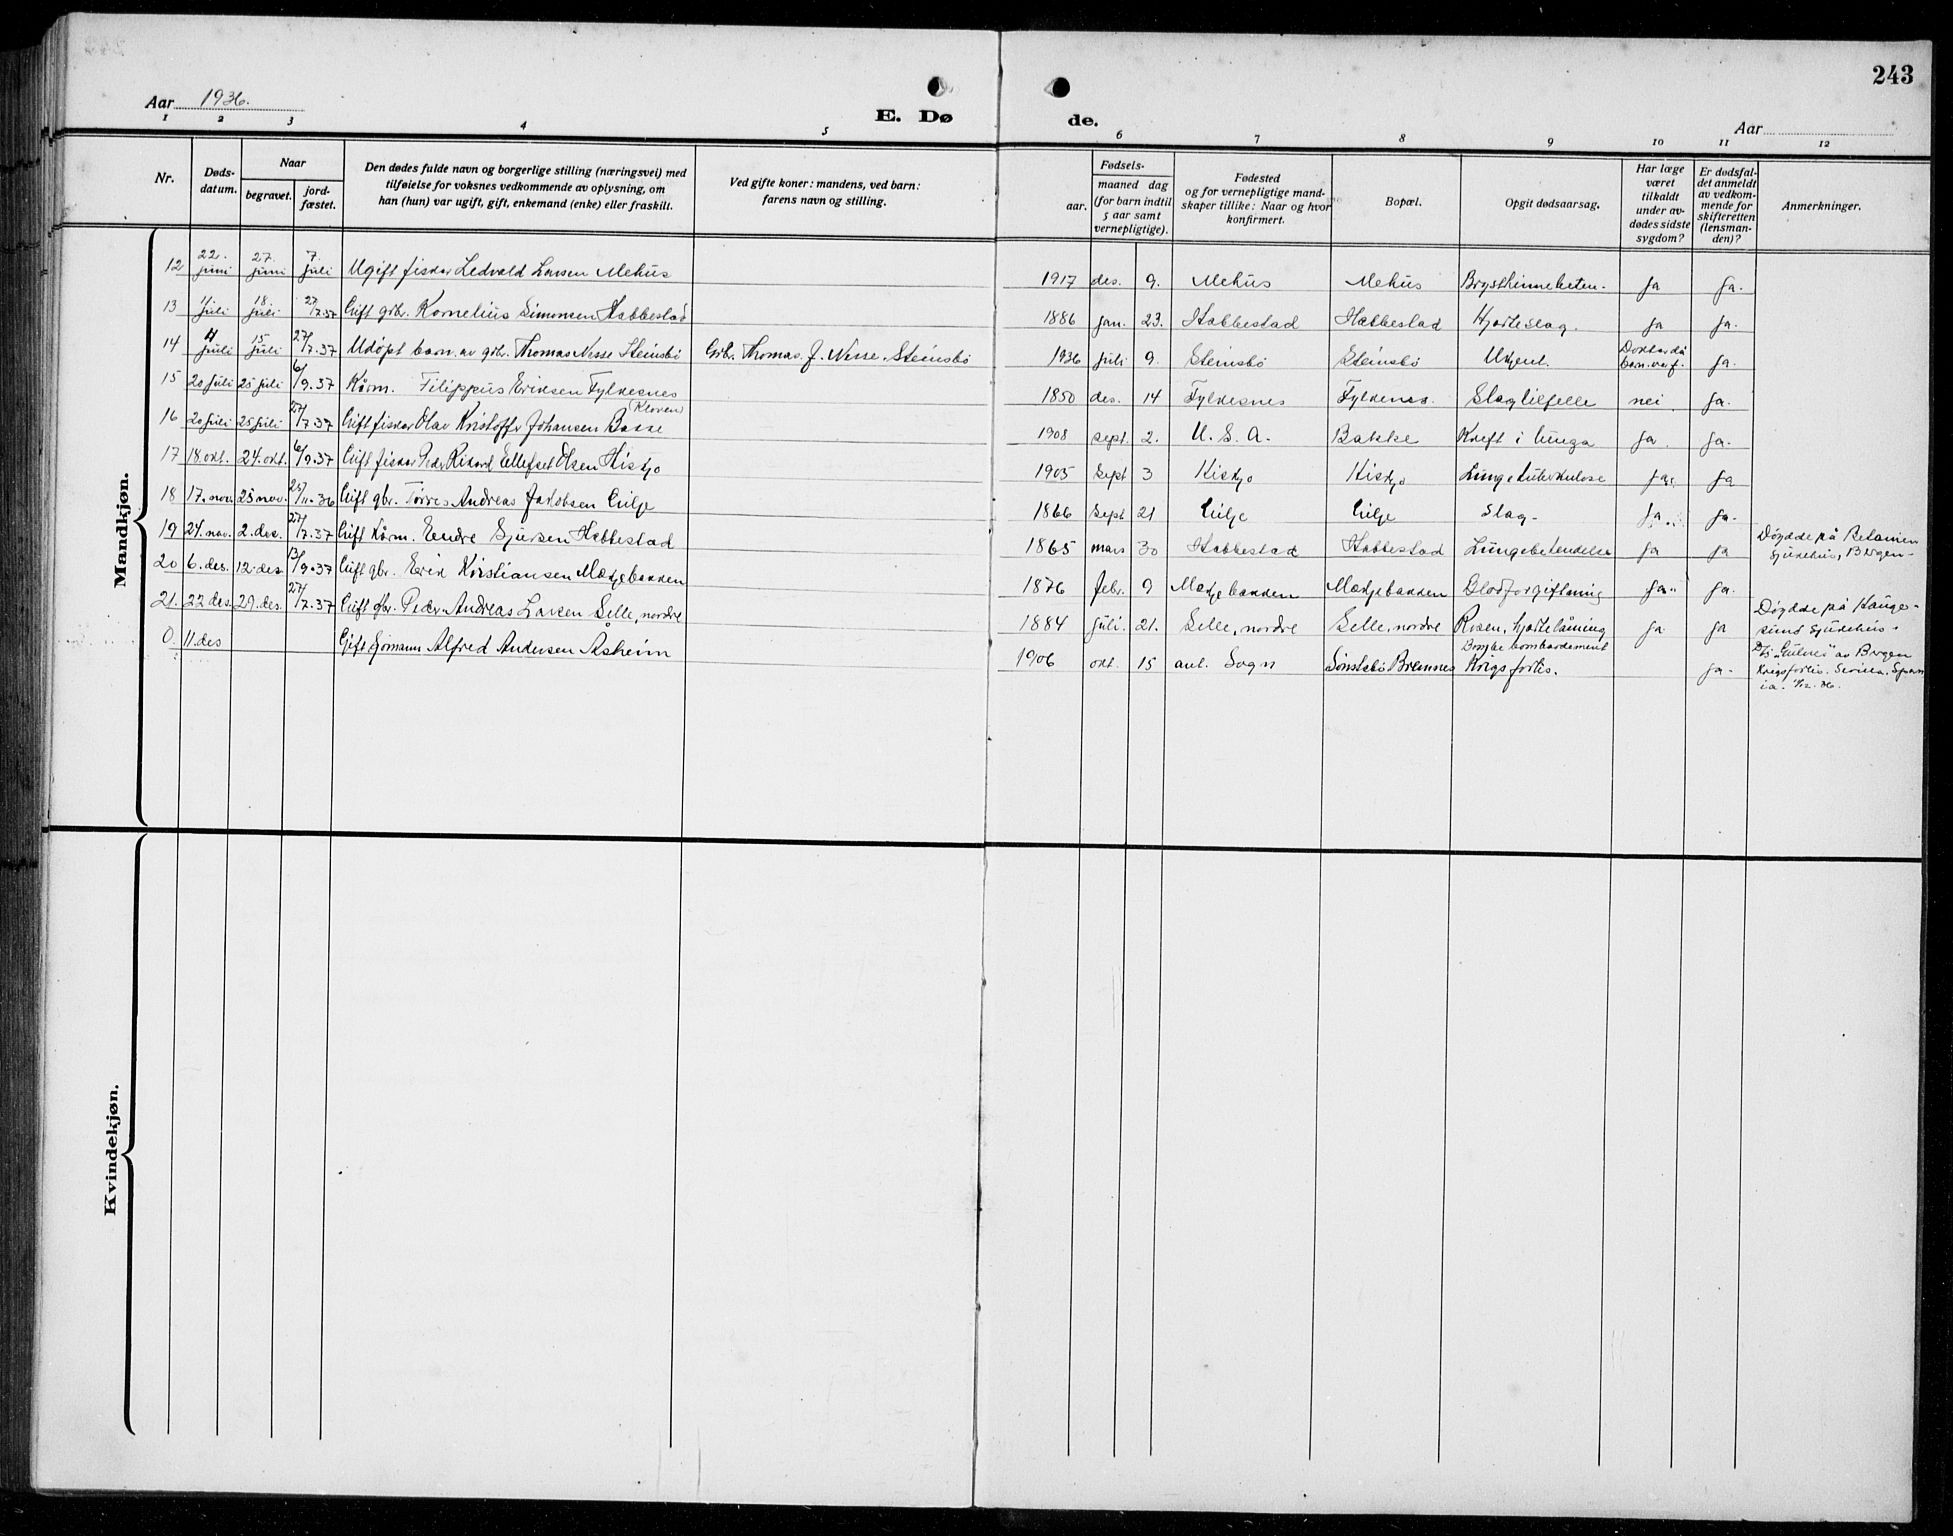 243
Aar 1936.
E. Dø
de.
Aar
1 2 3 4 5 6 7 8 9 10 11 12
Nr.
Døds-
datum.
Naar
begravet.
jord-
fæstet.
Den dødes fulde navn og borgerlige stilling (næringsvei) med
tilføielse for voksnes vedkommende av oplysning, om
han (hun) var ugift, gift, enkemand (enke) eller fraskilt.
Ved gifte koner: mandens, ved barn:
farens navn og stilling.
Fødsels-
aar.
maaned dag
(for barn indtil
5 aar samt
vernepligtige).
Fødested
og for vernepligtige mand-
skaper tillike: Naar og hvor
konfirmert.
Bopæl.
Opgit dødsaarsag.
Har læge
været
tilkaldt
under av-
dødes sidste
sygdom?
Er dødsfal-
det anmeldt
av vedkom-
mende for
skifteretten
(lensman-
den)?
Anmerkninger.
Mandkjøn.
12 22. juni 27. juni 7. juli Ugift fisker Ledvald Larsen Mehus 1917 des. 9. Mehus Mehus Brysthinnebeten. ja ja.
13 juli 18 juli 27/7.37 Gift gbr. Kornelius Simonsen Habbestad 1886 jan. 23. Habbestad Habbestad Hjarteslag. ja ja.
14 juli 15 juli 27/7.37 Udøpt barn av gbr. Thomas Nesse Steinsbø Gbr. Thomas J. Nesse, Steinsbø 1936 juli 9. Steinsbø Steinsbø Ukjent. Doktor då barn. var f. ja.
15 20 juli 25 juli 6/9.37 Kårm. Filippus Eriksen Fylkesnes 1850 des. 14 Fylkesnes Fylkenes. Slagtilfelle nei ja.
16 20 juli 25 juli 27/7.37 Gift fisker Olav Kristoffer Johansen Basse (Kloven) 1908 sept. 2. U. S. A. Bakke Kreft i lunga ja. ja.
17 18. okt. 24. okt. 6/9.37 Gift fisker Peder Rikard Ellefset Olsen Kiskjo 1905 sept 3 Kiskjo Kiskjo Lungetuberkulose ja. ja
18 17. nov. 25 nov. 25/11.36 Gift gbr. Torres Andreas Jakobsen Gilje 1866 sept 21 Gilje Gilje Slag. ja. ja.
19 24. nov. 2. des. 27/7.37 Gift kårm. Endre Sjursen Habbestad 1865 mars 30 Habbestad Habbestad Lungebetendelse ja ja Døydde på Betanien sjukehus, Bergen.
20 6. des. 12. des 13/9.37 Gift gbr. Erik Kristiansen Mækjebakken 1876 febr. 9 Mækjebakken Mækjebakken Blodforgiftning ja ja.
21. 22 des. 29. des. 27/7.37 Gift gbr. Peder Andreas Larsen Selle, nordre 1884 juli. 21. Selle, nordre Selle, nordre Rosen, hjartelåming ja ja Døydde på Hauge-
sund sjukehus.
0 11. des Gift sjömann Alfred Andersen Åsheim 1906 okt. 15 ant. Sogn Sønstebö Bremnes Bombe bombardement
Krigsforlis. ja. D/s "Gulnes" av Bergen
Krigsforlis. Sevilla. Span
ia. 11/12. 36.
Kvindekjøn.